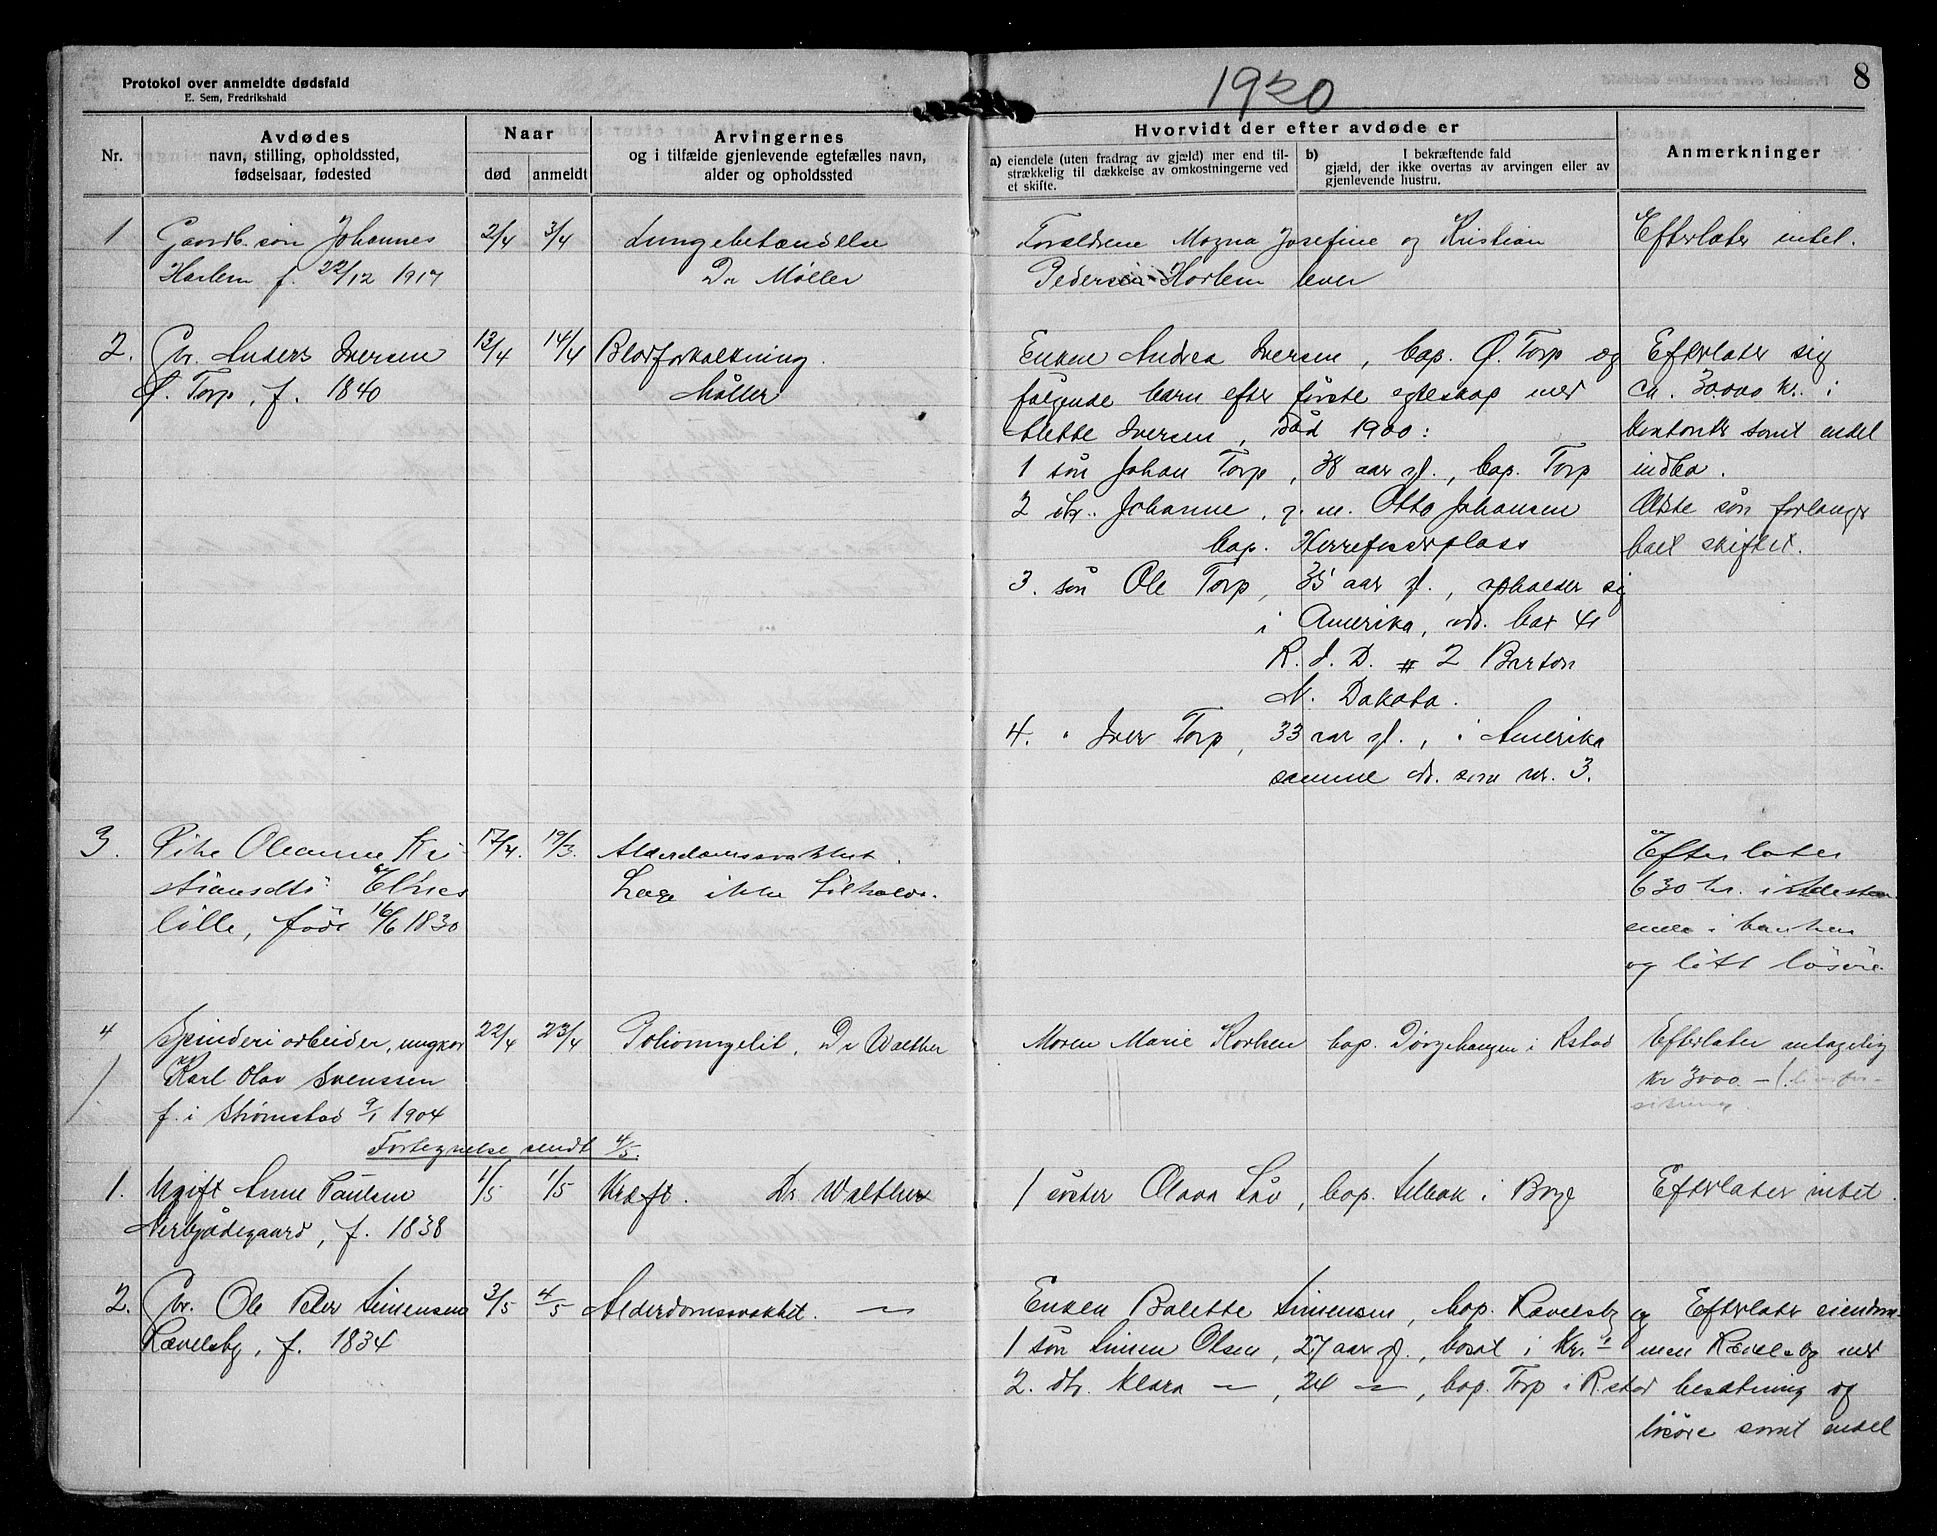 1920
8
Protokol over anmeldte dødsfald
E. Sem, Fredrikshald
Nr.
Avdødes
navn, stilling, opholdssted,
fødselsaar, fødested
Naar
død
anmeldt
Arvingernes
og i tilfælde gjenlevende egtefælles navn,
alder og opholdssted
Hvorvidt der efter avdøde er
a) eiendele (uten fradrag av gjæld) mer end til-
strækkelig til dækkelse av omkostningerne ved
et skifte.
b) I bekræftende fald
gjæld, der ikke overtas av arvingen eller av
gjenlevende hustru.
Anmerkninger
1
Gaardb. søn Johannes
Harlem f. 22/12 1917
2/4
3/4
Lungebetændelse
Dr Møller
Forældrene Magna Josefine og Kristian
Pedersen Horlem lever
Efterlater intet.
2.
Gbr. Anders Iversen
Ø. Torp, f. 1840
13/4
14/4
Blodforkalkning.
Møller
Enken Andrea Iversen, bop. Ø. Torp og
følgende barn efter første egteskap med
Mette Iversen, død 1900:
1 søn Johan Torp, 38 aar gl., bop. Torp
2 dtr. Johanne, g. m. Otto Johansen
bop. Herrefosserplass
3. søn Ole Torp, 35 aar gl., opholder sig
i Amerika, adr. box 41
R. F. D. # 2 Barton
N. Dakota.
4. " Iver Torp, 33 aar gl., i Amerika
samme adr. som nr. 3.
Efterlater sig
ca. 30.000 kr. i
kontanter samt endel
indbo.
Ældste søn forlanger
skiftet.
3.
Pike Oleanne Kri-
stiansdtr Elnes
lille, født 16/6 1830
17/4.
19/3.
Alderdomssvakhet.
Læge ikke tilkaldt.
Efterlater
630 kr. indesta-
ende i banken
og litt løsøre.
4
Spinderiarbeider, ungkar
Karl Olav Svenssen
f. i Strømstad 9/1 1904
22/4
23/4
Poliomyelit. Dr Walther
Moren Marie Korhen bop. Dörjehaugen i Rstad
Efterlater antagelig
kr 3000.- (livsfor-
sikring
Fortegnelse sendt 4/5.
1.
Ugift Anne Paulsen
Nerbyødegaard, f. 1838
1/5
1/5
Kræft. Dr. Walther
1 søster Olava Løv, bop. Selbak i Borge
Efterlater intet.
2.
Gbr. Ole Peter Simensen
Rævelsby, f. 1834
3/5
4/5
Alderdomssvakhet. —
Enken Bolette Simensen, bop. Rævelsby og
1 søn Simen Olsen, 27 aar gl., bosat i Kr.a
2. dtr. Klara — , 24 — , bop. Torp i R.stad
Efterlater eiendom-
men Rævelsby med
besætning og
løsøre samt endel